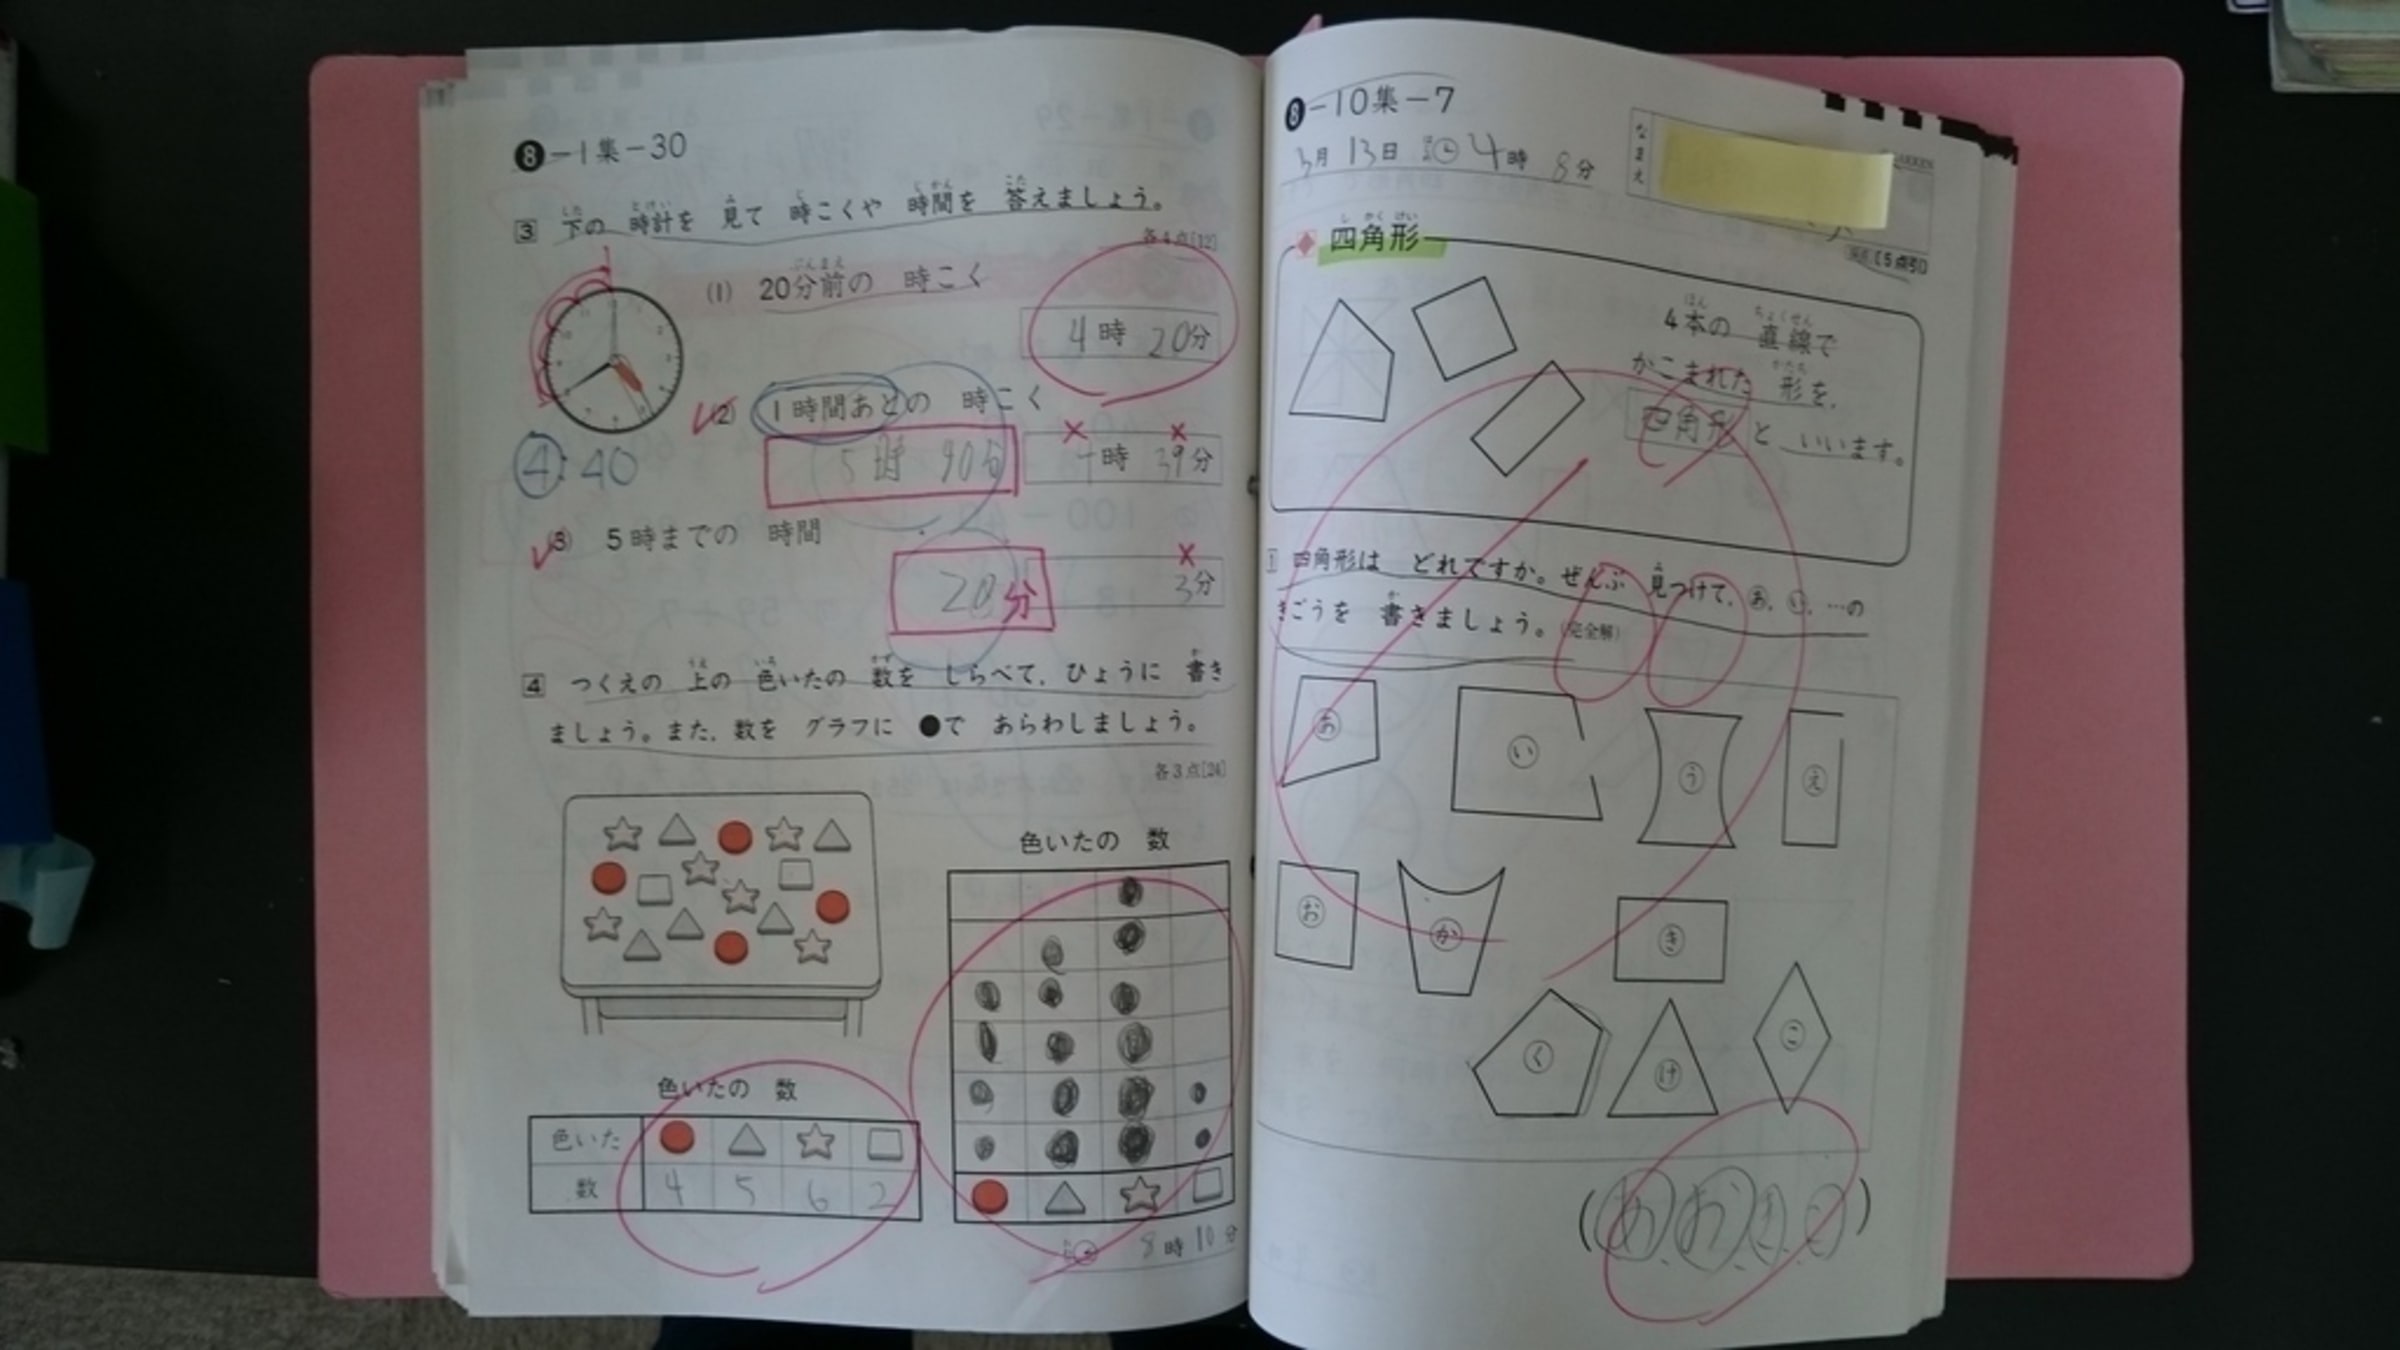 8-1集-30
3 下の 時計を 見て 時こくや 時間を 答えましょう。
各4点[12]
(1) 20分前の 時こく
4時 20分
(2) 1時間あとの 時こく
5時 40分
時 39分
4:40
(3) 5時までの 時間
20分
3分
4 つくえの 上の 色いたの 数を しらべて、ひょうに 書き
ましょう。また、数を グラフに ●で あらわしましょう。
各3点[24]
色いたの 数
色いたの 数
色いた
数 4 5 6 2
8時10分
8-10集-7
3月 13日 4時 8分
なまえ
四角形
4本の 直線で
かこまれた 形を、
四角形 と いいます。
1 四角形は どれですか。ぜんぶ 見つけて、あ、い、…の
きごうを 書きましょう。(完全解)
あ い う え
お か き
く け こ
(あ、お、き、こ)